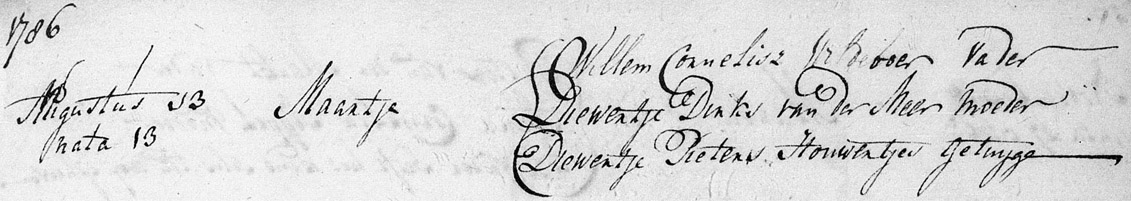 1786
Augustus 13 Maantje Willem Cornelisz Vader
nata 13 Diewertje Dirks van der Meer moeder
Diewertje Pieters Houwertjes getuyge